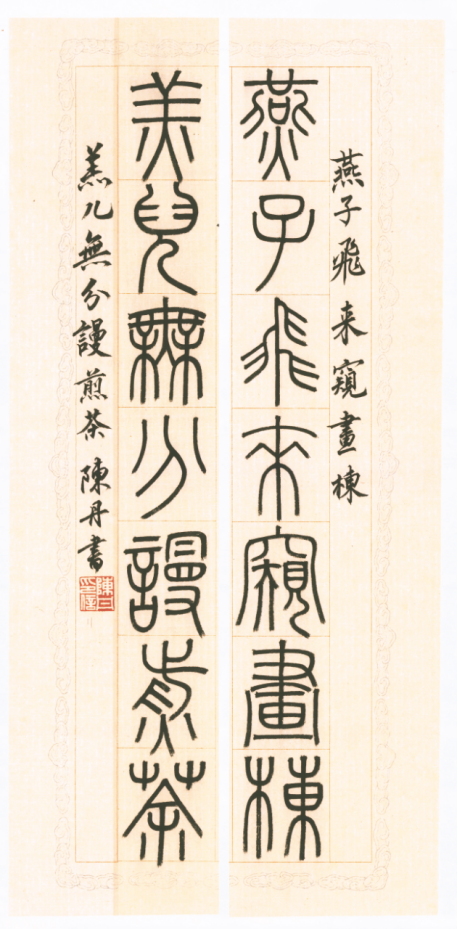 燕子飛来窺畫棟
燕子飛來窺畫棟
羔兒無分謾煎茶
羔儿無分謾煎茶 陳丹書